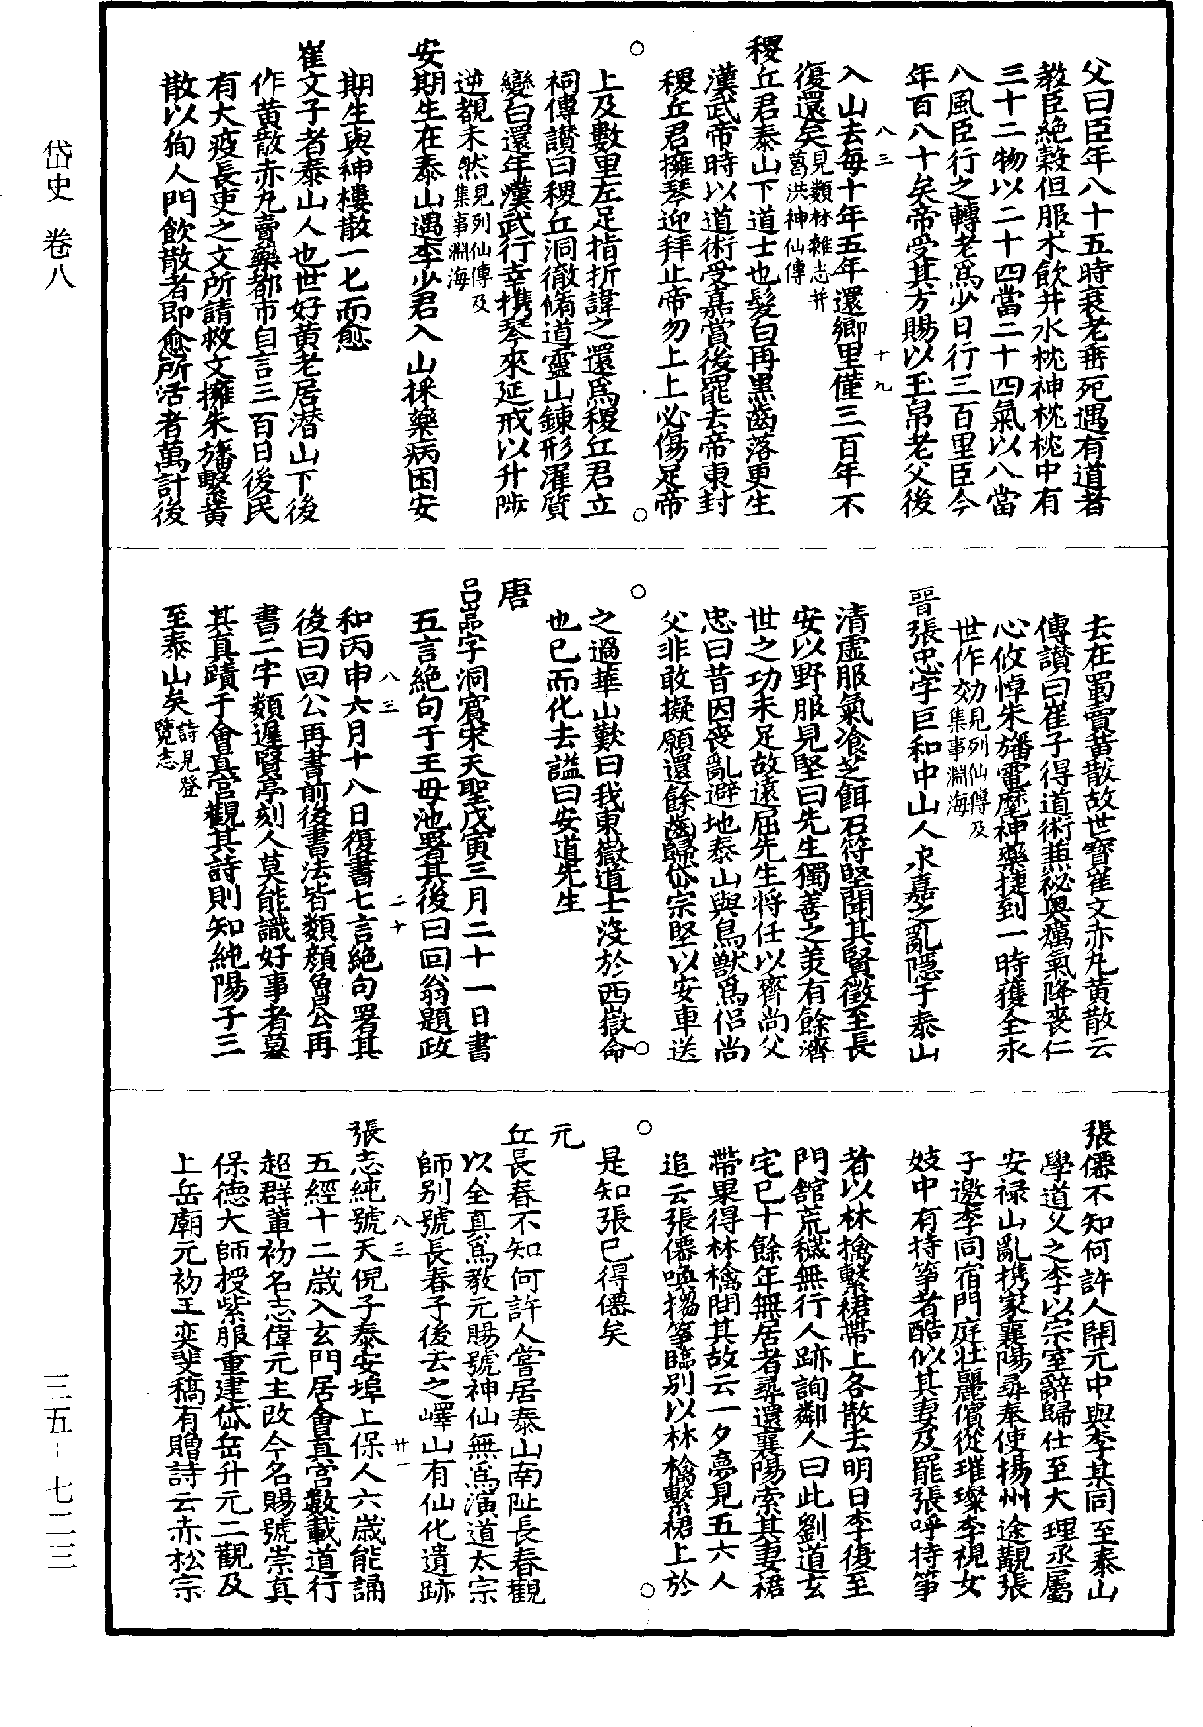 岱史 卷八
三五-七二三
父曰臣年八十五時衰老垂死遇有道者
教臣絕穀但服朮飲井水枕神枕枕中有
三十二物以二十四當二十四氣以八當
八風臣行之轉老爲少日行三百里臣今
年百八十矣帝受其方賜以玉帛老父後
八三 十九
入山去每十年五年還鄉里僅三百年不
復還矣見類林雜志并葛洪神仙傳
稷丘君泰山下道士也髮白再黑齒落更生
漢武帝時以道術受嘉賞後罷去帝東封
稷丘君擁琴迎拜止帝勿上上必傷足帝
上及數里左足指折諱之還爲稷丘君立
祠傳讃曰稷丘洞徹脩道靈山鍊形濯質
變白還年漢武行幸携琴來延戒以升陟
逆覩未然見列仙傳及集事淵海
安期生在泰山遇李少君入山採藥病困安
期生與神樓散一七而愈
崔文子者泰山人也世好黃老居潛山下後
作黃散赤丸賣藥都市自言三百日後民
有大疫長吏之文所請救文擁朱旛繫黃
散以徇人門飲散者即愈所活者萬計後
去在蜀賣黃散故世寶崔文赤丸黃散云
傳讃曰崔子得道術兼祕奧癘氣降喪仁
心攸悼朱旛電麾神藥捷到一時獲全永
世作効見列仙傳及集事淵海
晉張忠字巨和中山人永嘉之亂隱于泰山
清虛服氣飡芝餌石符堅聞其賢徵至長
安以野服見堅曰先生獨善之美有餘濟
世之功未足故遠屈先生將任以齊尚父
忠曰昔因喪亂避地泰山與鳥獸爲侣尚
父非敢擬願還餘齒歸岱宗堅以安車送
之過華山歎曰我東嶽道士沒於西嶽命
也已而化去謚曰安道先生
唐
呂嵓字洞賓宋天聖戊寅三月二十一日書
五言絕句于王母池署其後曰回翁題政
八三 二十
和丙申六月十八日復書七言絕句署其
後曰回公再書前後書法皆類顏魯公再
書二字類遲賢亭刻人莫能識好事者墓
其真蹟于會真宮觀其詩則知純陽子三
至泰山矣詩見登覽志
張僊不知何許人開元中與李某同至泰山
學道乆之李以宗室辭歸仕至大理丞屬
安禄山亂携家襄陽尋奉使揚州途覯張
子邀李同宿門庭壯麗儐從璀璨李視女
妓中有持箏者酷似其妻及罷張呼持箏
者以林檎繫裙帶上各散去明日李復至
門舘荒穢無行人跡詢鄰人曰此劉道玄
宅已十餘年無居者尋還襄陽索其妻裙
帶果得林檎問其故云一夕夢見五六人
追云張僊喚搊箏臨別以林檎繫裙上於
是知張已得僊矣
元
丘長春不知何許人嘗居泰山南阯長春觀
以全真爲教元賜號神仙無爲演道太宗
師別號長春子後去之嶧山有仙化遺跡
八三 廿一
張志純號天倪子泰安埠上保人六歲能誦
五經十二歲入玄門居會真宮數載道行
超群輩初名志偉元主改今名賜號崇真
保德大師授紫服重建岱岳升元二觀及
上岳廟元初王奕斐稿有贈詩云赤松宗